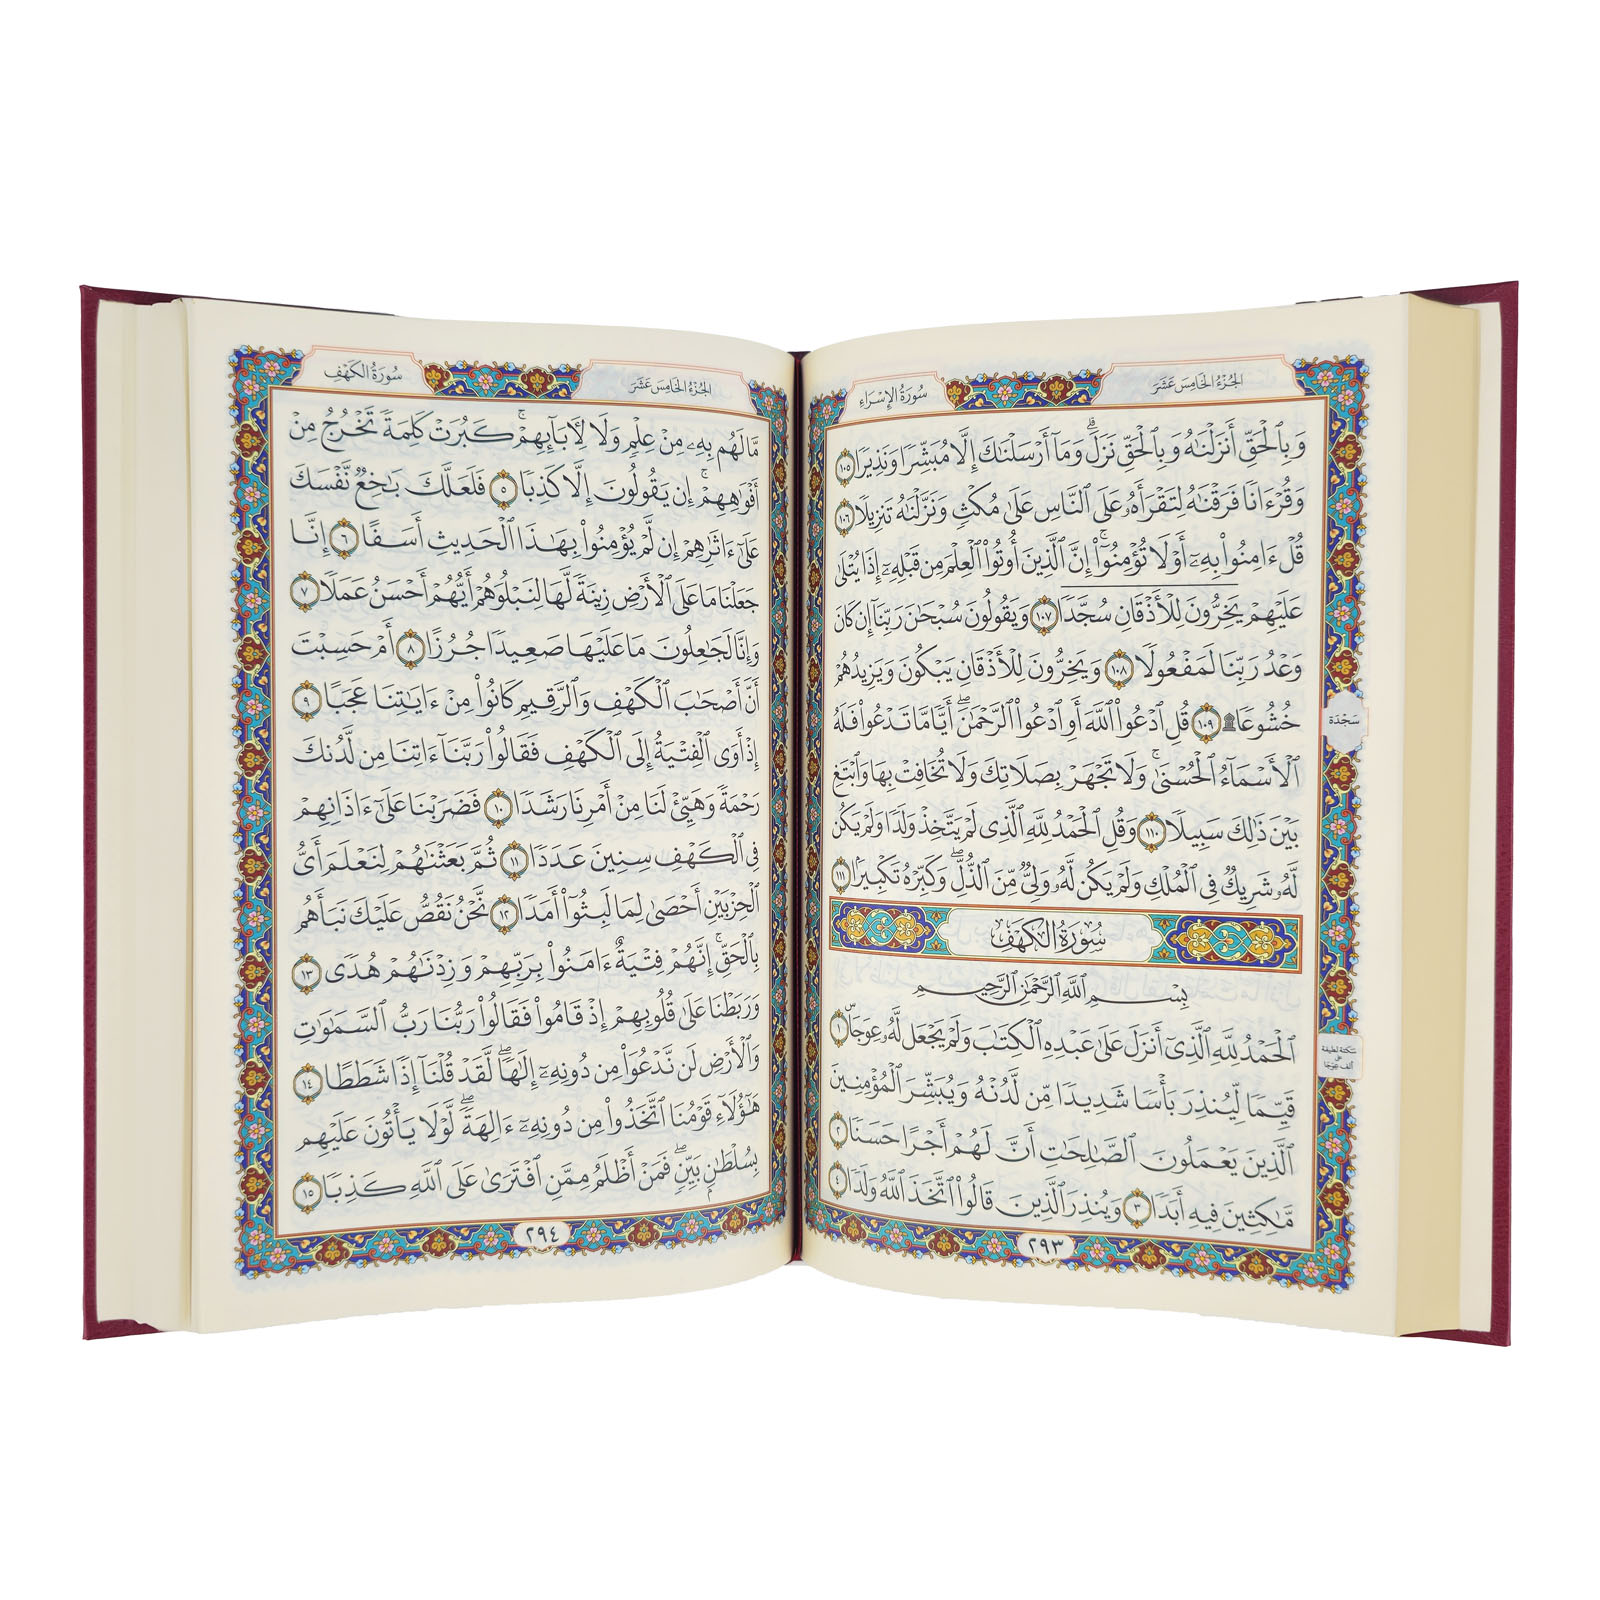 سُورَةُ الإِسْرَاءِ
الجُزْءُ الخَامِسَ عَشَرَ
وَبِٱلْحَقِّ أَنزَلْنَٰهُ وَبِٱلْحَقِّ نَزَلَ ۗ وَمَآ أَرْسَلْنَٰكَ إِلَّا مُبَشِّرًا وَنَذِيرًا ١٠٥
وَقُرْءَانًا فَرَقْنَٰهُ لِتَقْرَأَهُۥ عَلَى ٱلنَّاسِ عَلَىٰ مُكْثٍ وَنَزَّلْنَٰهُ تَنزِيلًا ١٠٦
قُلْ ءَامِنُوا۟ بِهِۦٓ أَوْ لَا تُؤْمِنُوٓا۟ ۚ إِنَّ ٱلَّذِينَ أُوتُوا۟ ٱلْعِلْمَ مِن قَبْلِهِۦٓ إِذَا يُتْلَىٰ
عَلَيْهِمْ يَخِرُّونَ لِلْأَذْقَانِ سُجَّدًا ١٠٧ وَيَقُولُونَ سُبْحَٰنَ رَبِّنَآ إِن كَانَ
وَعْدُ رَبِّنَا لَمَفْعُولًا ١٠٨ وَيَخِرُّونَ لِلْأَذْقَانِ يَبْكُونَ وَيَزِيدُهُمْ
خُشُوعًا ۩ ١٠٩ قُلِ ٱدْعُوا۟ ٱللَّهَ أَوِ ٱدْعُوا۟ ٱلرَّحْمَٰنَ ۖ أَيًّا مَّا تَدْعُوا۟ فَلَهُ
سَجْدَة
ٱلْأَسْمَآءُ ٱلْحُسْنَىٰ ۚ وَلَا تَجْهَرْ بِصَلَاتِكَ وَلَا تُخَافِتْ بِهَا وَٱبْتَغِ
بَيْنَ ذَٰلِكَ سَبِيلًا ١١٠ وَقُلِ ٱلْحَمْدُ لِلَّهِ ٱلَّذِى لَمْ يَتَّخِذْ وَلَدًا وَلَمْ يَكُن
لَّهُۥ شَرِيكٌ فِى ٱلْمُلْكِ وَلَمْ يَكُن لَّهُۥ وَلِىٌّ مِّنَ ٱلذُّلِّ ۖ وَكَبِّرْهُ تَكْبِيرًۢا ١١١
سُورَةُ الكَهْفِ
بِسْمِ ٱللَّهِ ٱلرَّحْمَٰنِ ٱلرَّحِيمِ
ٱلْحَمْدُ لِلَّهِ ٱلَّذِىٓ أَنزَلَ عَلَىٰ عَبْدِهِ ٱلْكِتَٰبَ وَلَمْ يَجْعَل لَّهُۥ عِوَجَاۜ ١
سَكتة لطيفة
على
ألف عِوَجَا
قَيِّمًا لِّيُنذِرَ بَأْسًا شَدِيدًا مِّن لَّدُنْهُ وَيُبَشِّرَ ٱلْمُؤْمِنِينَ
ٱلَّذِينَ يَعْمَلُونَ ٱلصَّٰلِحَٰتِ أَنَّ لَهُمْ أَجْرًا حَسَنًا ٢
مَّٰكِثِينَ فِيهِ أَبَدًا ٣ وَيُنذِرَ ٱلَّذِينَ قَالُوا۟ ٱتَّخَذَ ٱللَّهُ وَلَدًا ٤
٢٩٣
سُورَةُ الكَهْفِ
الجُزْءُ الخَامِسَ عَشَرَ
مَّا لَهُم بِهِۦ مِنْ عِلْمٍ وَلَا لِءَابَآئِهِمْ ۚ كَبُرَتْ كَلِمَةً تَخْرُجُ مِنْ
أَفْوَٰهِهِمْ ۚ إِن يَقُولُونَ إِلَّا كَذِبًا ٥ فَلَعَلَّكَ بَٰخِعٌ نَّفْسَكَ
عَلَىٰٓ ءَاثَٰرِهِمْ إِن لَّمْ يُؤْمِنُوا۟ بِهَٰذَا ٱلْحَدِيثِ أَسَفًا ٦ إِنَّا
جَعَلْنَا مَا عَلَى ٱلْأَرْضِ زِينَةً لَّهَا لِنَبْلُوَهُمْ أَيُّهُمْ أَحْسَنُ عَمَلًا ٧
وَإِنَّا لَجَٰعِلُونَ مَا عَلَيْهَا صَعِيدًا جُرُزًا ٨ أَمْ حَسِبْتَ
أَنَّ أَصْحَٰبَ ٱلْكَهْفِ وَٱلرَّقِيمِ كَانُوا۟ مِنْ ءَايَٰتِنَا عَجَبًا ٩
إِذْ أَوَى ٱلْفِتْيَةُ إِلَى ٱلْكَهْفِ فَقَالُوا۟ رَبَّنَآ ءَاتِنَا مِن لَّدُنكَ
رَحْمَةً وَهَيِّئْ لَنَا مِنْ أَمْرِنَا رَشَدًا ١٠ فَضَرَبْنَا عَلَىٰٓ ءَاذَانِهِمْ
فِى ٱلْكَهْفِ سِنِينَ عَدَدًا ١١ ثُمَّ بَعَثْنَٰهُمْ لِنَعْلَمَ أَىُّ
ٱلْحِزْبَيْنِ أَحْصَىٰ لِمَا لَبِثُوٓا۟ أَمَدًا ١٢ نَّحْنُ نَقُصُّ عَلَيْكَ نَبَأَهُم
بِٱلْحَقِّ ۚ إِنَّهُمْ فِتْيَةٌ ءَامَنُوا۟ بِرَبِّهِمْ وَزِدْنَٰهُمْ هُدًى ١٣
وَرَبَطْنَا عَلَىٰ قُلُوبِهِمْ إِذْ قَامُوا۟ فَقَالُوا۟ رَبُّنَا رَبُّ ٱلسَّمَٰوَٰتِ
وَٱلْأَرْضِ لَن نَّدْعُوَا۟ مِن دُونِهِۦٓ إِلَٰهًا ۖ لَّقَدْ قُلْنَآ إِذًا شَطَطًا ١٤
هَٰٓؤُلَآءِ قَوْمُنَا ٱتَّخَذُوا۟ مِن دُونِهِۦٓ ءَالِهَةً ۖ لَّوْلَا يَأْتُونَ عَلَيْهِم
بِسُلْطَٰنٍۭ بَيِّنٍ ۖ فَمَنْ أَظْلَمُ مِمَّنِ ٱفْتَرَىٰ عَلَى ٱللَّهِ كَذِبًا ١٥
٢٩٤